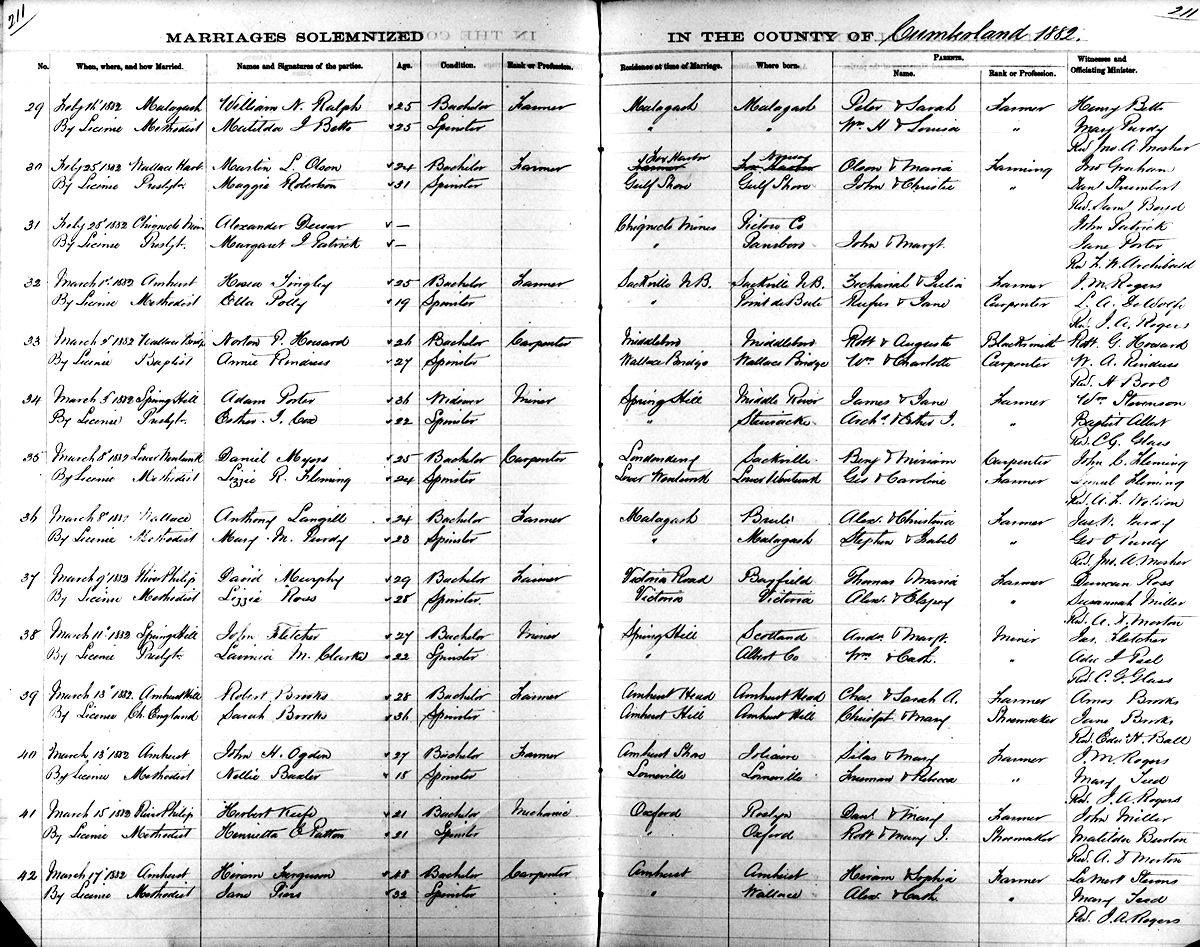 211
211
MARRIAGES SOLEMNIZED
IN THE COUNTY OF Cumberland 1882.
No. When, where, and how Married. Names and Signatures of the parties. Age. Condition. Rank or Profession. Residence at time of Marriage. Where born. PARENTS. Name. Rank or Profession. Witnesses and Officiating Minister.
29 Feby 14 1882 Malagash William N. Ralph 25 Bachelor Farmer Malagash Malagash Peter & Sarah Farmer Henry Betts
By License Methodist Matilda J Betts 25 Spinster " " Wm H & Louisa " Mary Purdy
Rev Jno. A. Mosher
30 Feby 25 1882 Wallace Harb. Martin L. Olson 24 Bachelor Farmer Fox Harbor Norway Olson & Maria Farming Geo Graham
By License Presbyt. Maggie Robertson 31 Spinster Gulf Shore Gulf Shore John & Christie "
Rev. Saml Boyd
31 Feby 28 1882 Chignecto Mines Alexander Dewar — Chignecto Mines Pictou Co John Patrick
By License Presbyt. Margaret J Patrick — " Parrsboro John & Margt. Jane Porter
Rev. Archibald
32 March 1st 1882 Amherst Hosea Tingley 25 Bachelor Sackville N.B. Sackville N.B. & Julia Farmer J. M. Rogers
By License Methodist Etta Polly 19 Spinster " Point de Bute Rufus & Jane Carpenter L. A. DeWolfe
Rev. J. A. Rogers
33 March 2 1882 Wallace Bridge Norton P. Howard 26 Bachelor Carpenter Middleboro Middleboro Robt & Augusta Blacksmith Robt. G. Howard
By License Baptist Annie 27 Spinster Wallace Bridge Wallace Bridge Wm. & Charlotte Carpenter W. A.
Rev. H Bool
34 March 3 1882 Spring Hill Adam Porter 36 Widower Miner Spring Hill Middle River James & Jane Farmer Wm Stevenson
By License Presbyt. Esther J. Cox 22 Spinster " Stewiacke Archd. & Esther J. " Baptist Albert
Rev. C. G. Glass
35 March 8 1882 Lower Wentworth Daniel Myers 25 Bachelor Carpenter Londonderry Sackville Benj & Miriam Carpenter John C. Fleming
By License Methodist Lizzie R. Fleming 24 Spinster Lower Wentworth Lower Wentworth Geo & Caroline Farmer Fleming
Rev. A. L.
36 March 8 1882 Wallace Anthony Langill 24 Bachelor Farmer Malagash Brule Alex. & Christina Farmer Purdy
By License Methodist Mary M. Purdy 23 Spinster " Malagash Stephen & Isabel " Geo O Purdy
Rev. Jno. A. Mosher
37 March 9 1882 River Philip David Murphy 29 Bachelor Farmer Victoria Road Bayfield Thomas & Maria Farmer Duncan Ross
By License Methodist Lizzie Ross 28 Spinster. Victoria Victoria Alex. & " Susannah Miller
Rev. A. D. Morton
38 March 11 1882 Spring Hill John Fletcher 27 Bachelor Miner Spring Hill Scotland Andw & Margt. Miner Jas. Fletcher
By License Presbyt. Lavinia M. Clarke 22 Spinster " Albert Co Wm & Cath. "
Rev. C. G. Glass
39 March 13 1882 Amherst Hill Robert Brooks 28 Bachelor Farmer Amherst Head Amherst Head Chas. & Sarah A. Farmer Amos Brooks
By License Ch. England Sarah Brooks 36 Spinster Amherst Hill Amherst Hill Christr & Mary Shoemaker Jane Brooks
Rev. Edw. H. Ball
40 March 13 1882 Amherst John H. Ogden 27 Bachelor Farmer Amherst Shore Jolicure Silas & Mary Farmer J. M. Rogers
By License Methodist Nellie Baxter 18 Spinster Lorneville Lorneville Freeman & Rebecca " Mary Teed
Rev. J. A. Rogers
41 March 15 1882 River Philip Herbert Keefe 21 Bachelor Mechanic Oxford Roslyn Danl & Mary Farmer John Miller
By License Methodist Henrietta C Patton 21 Spinster " Oxford Robt & Mary J. Shoemaker Matilda Burton
Rev. A. D Morton
42 March 17 1882 Amherst Hiram Ferguson 48 Bachelor Carpenter Amherst Amherst Hiram & Sophia Farmer
By License Methodist Jane Piers 32 Spinster " Wallace Alex. & Cath. " Mary Teed
Rev. J. A. Rogers